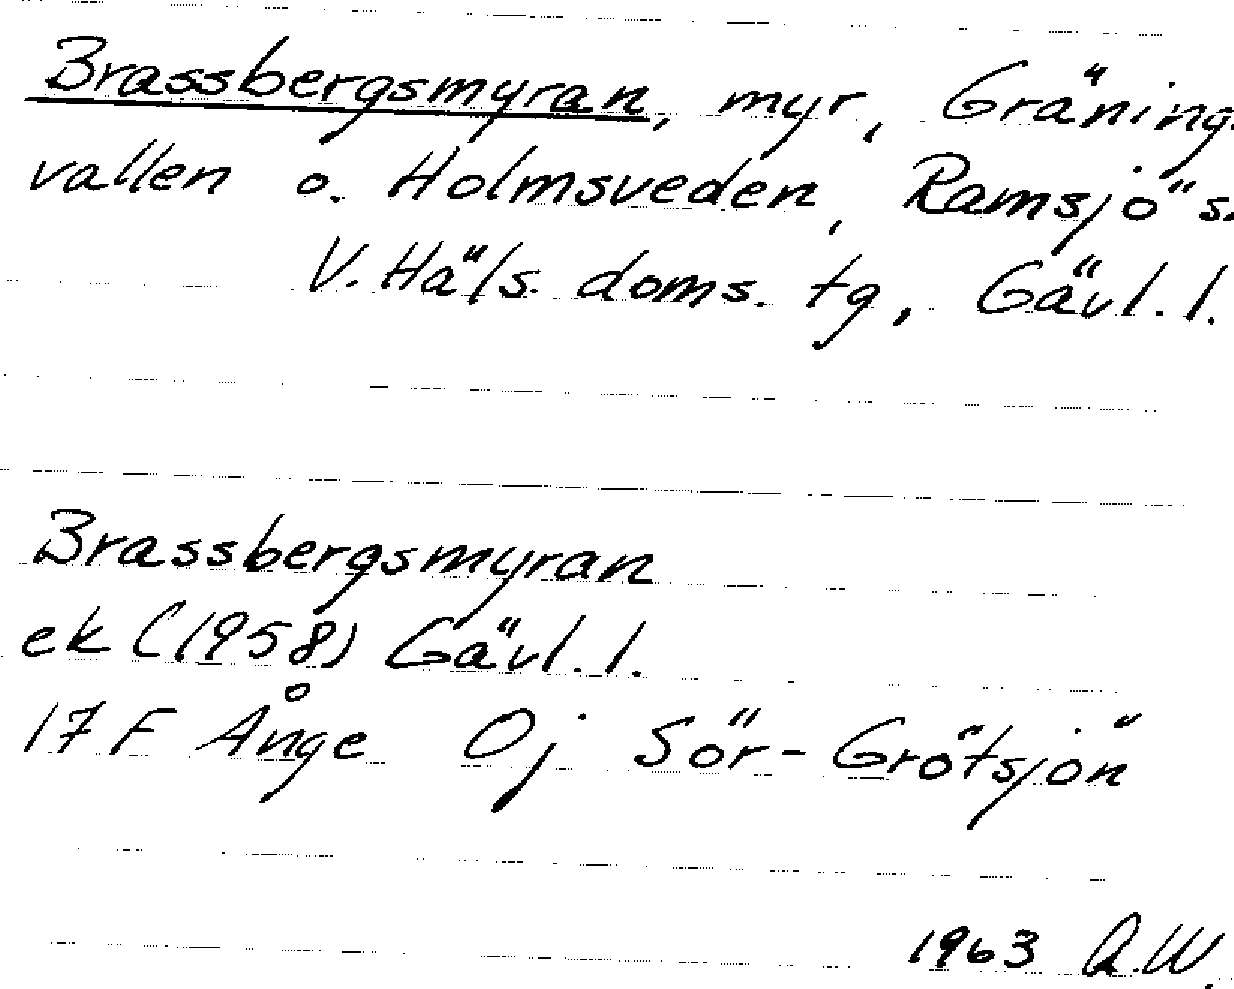 Brassbergsmyran, myr, Gränings
vallen o. Holmsveden, Ramsjö s.
V. Häls. doms. tg, Gävl. l.
Brassbergsmyran
ek (1958) Gävl. l.
17 F Ånge Oj Sör-Grötsjön
1963 A.W.